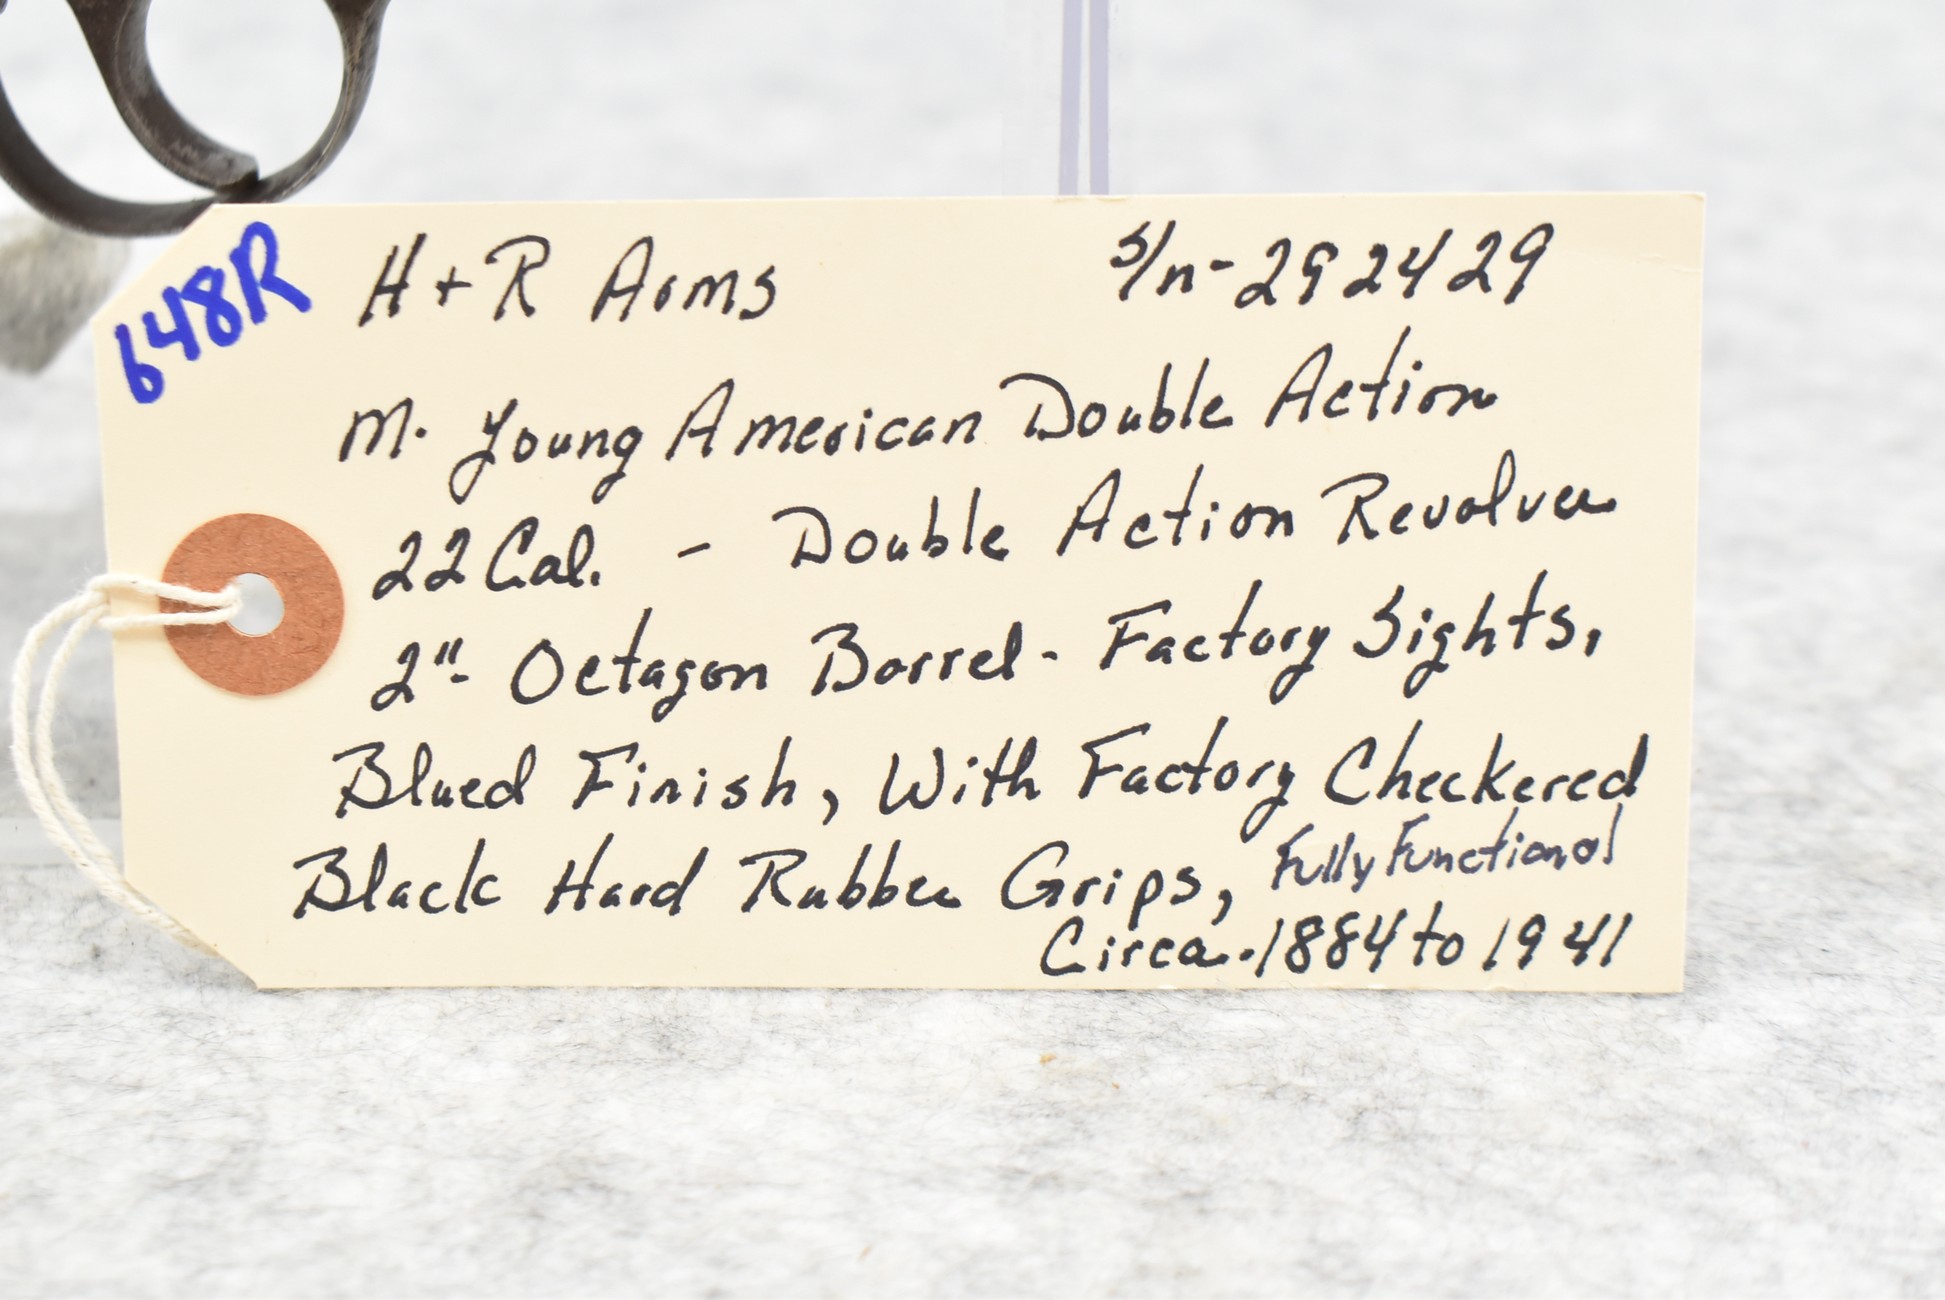 648R
H + R Arms s/n-292429
M. Young American Double Action
22 Cal. - Double Action Revolver
2"- Octagon Barrel - Factory Sights,
Blued Finish, With Factory Checkered
Black Hard Rubber Grips, Fully Functional
Circa.1884 to 1941